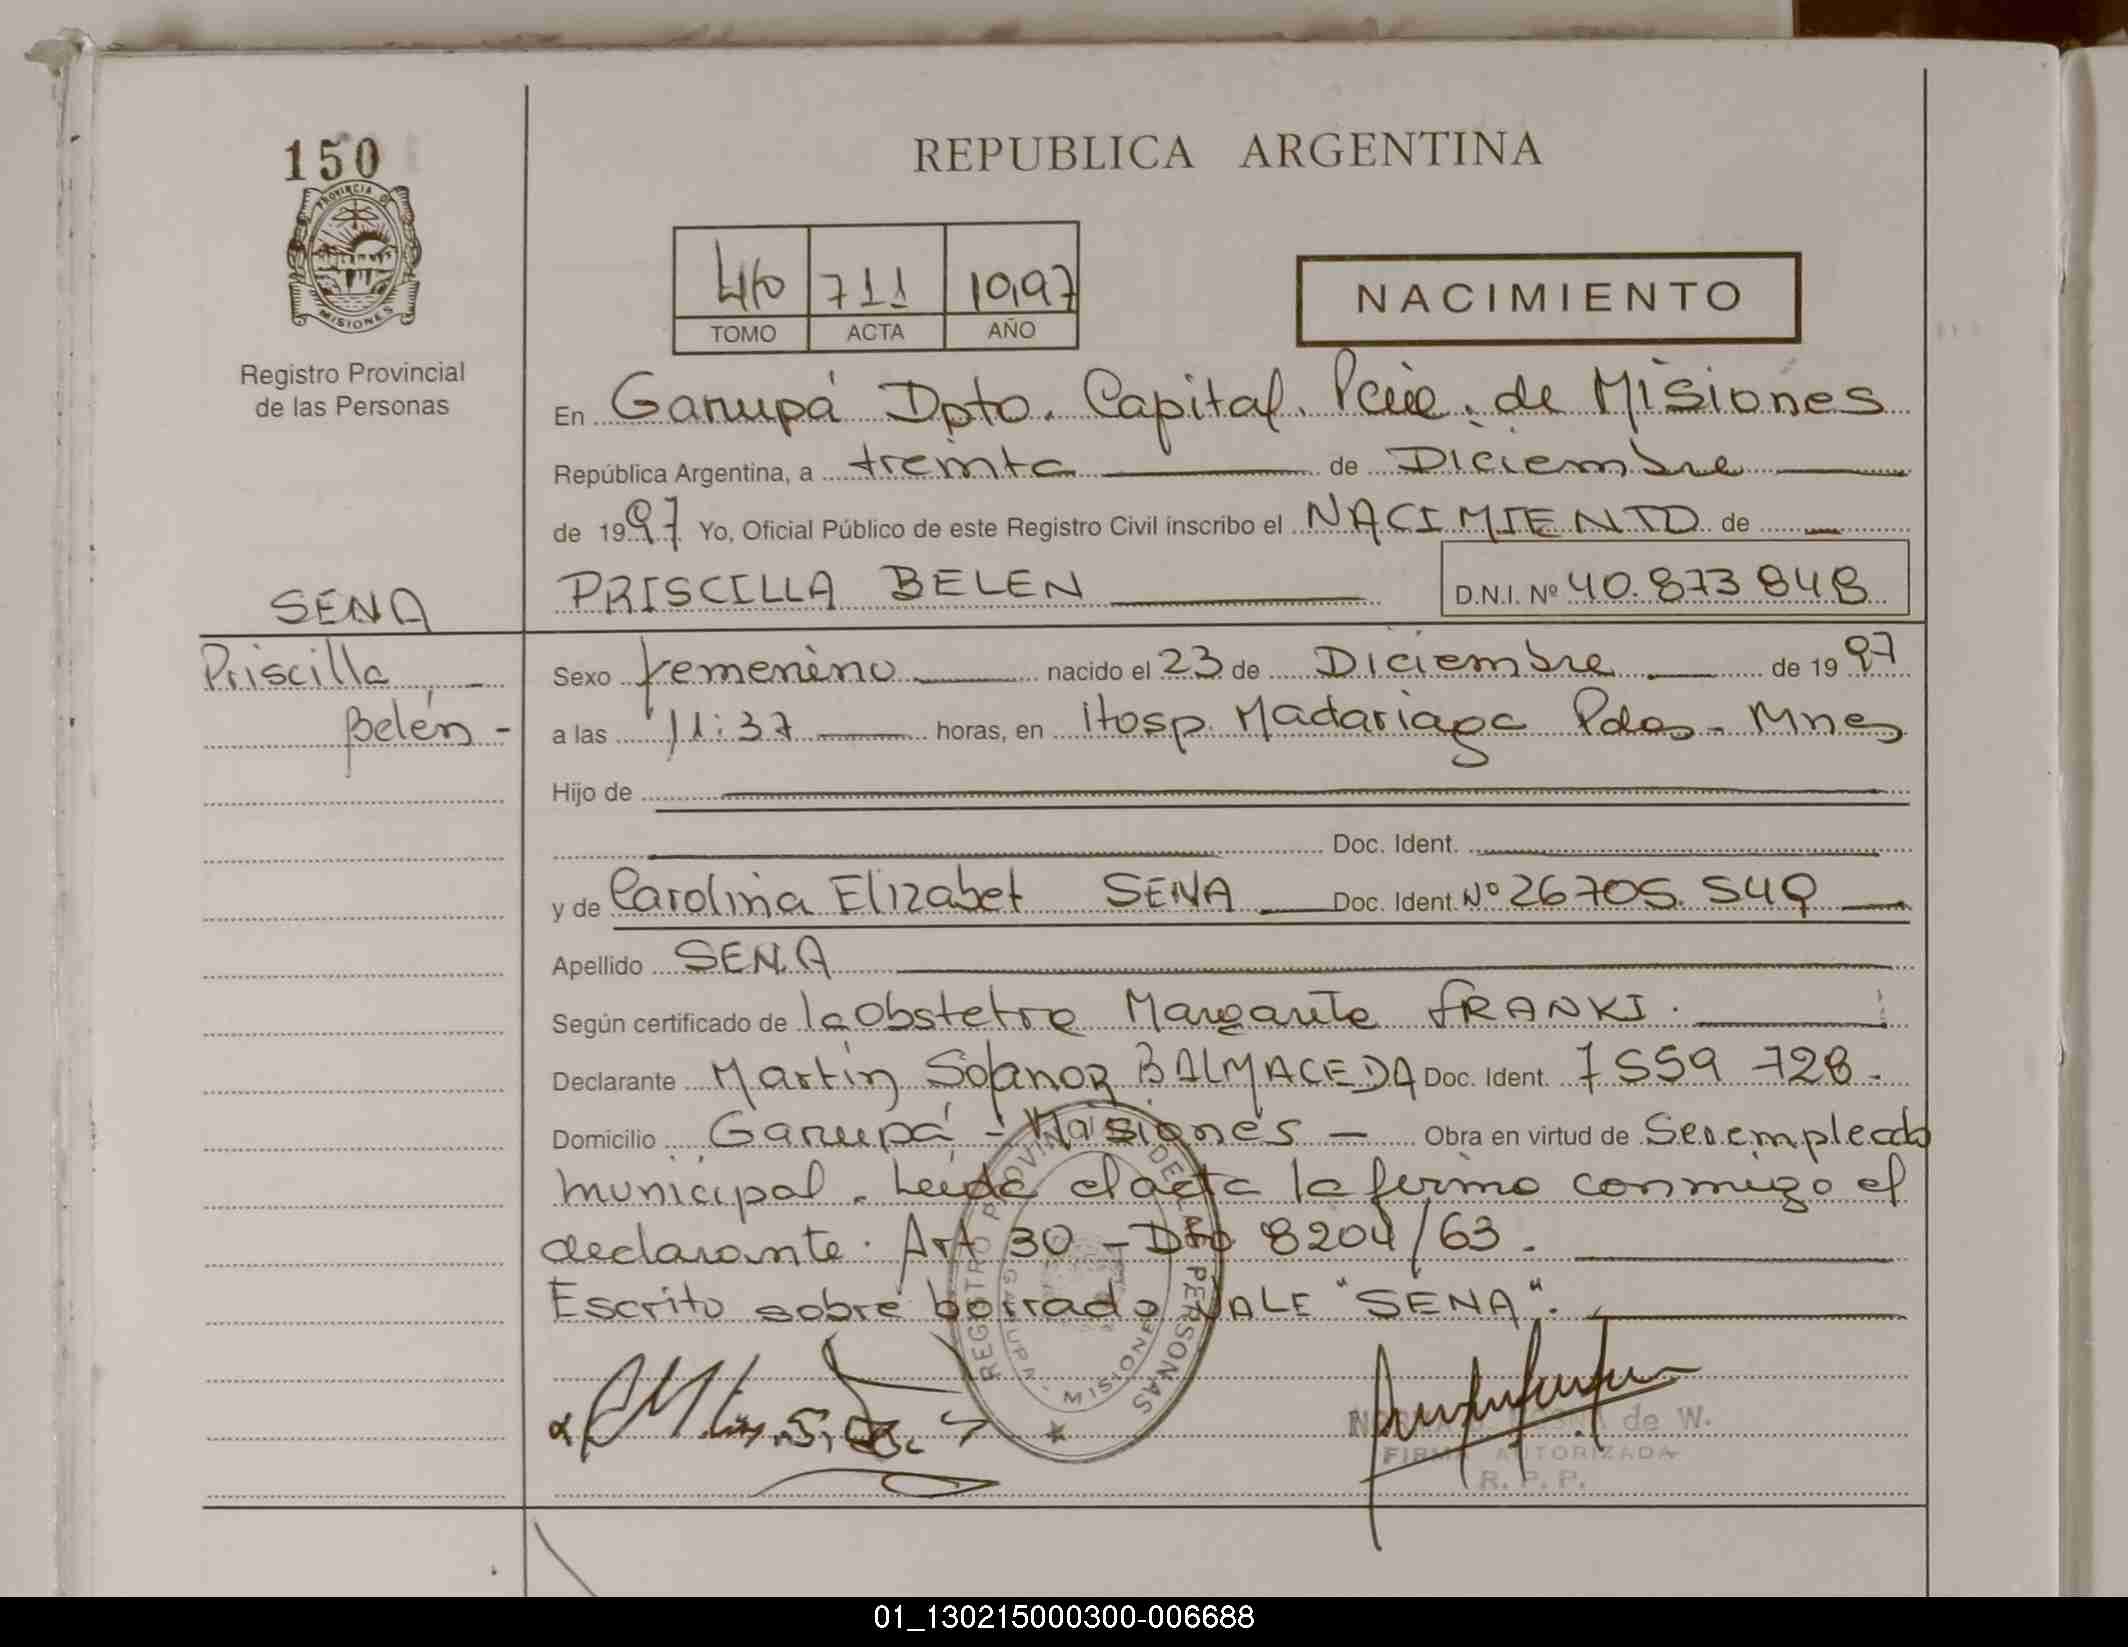 150
PROVINCIA DE
MISIONES
Registro Provincial
de las Personas
REPUBLICA ARGENTINA
711
TOMO ACTA AÑO
NACIMIENTO
En Garupá Dpto. Capital. Pcia. de Misiones
República Argentina, a treinta de Diciembre
de 1997 Yo, Oficial Público de este Registro Civil inscribo el NACIMIENTO de
PRISCILLA BELEN D.N.I. Nº 40.873848
SENA
Priscilla
Belén -
Sexo femenino nacido el 23 de Diciembre de 1997
a las 11:37 horas, en Hosp. Madariaga Pdas - Mnes
Hijo de
Doc. Ident.
y de Carolina Elizabet SENA Doc. Ident. Nº 26705.549
Apellido SENA
Según certificado de la obstetra Margarita FRANKI.
Declarante Martín BALMACEDA Doc. Ident. 7559 728.
Domicilio Garupá - Misiones - Obra en virtud de Ser empleado
municipal. Leída el acta la firma conmigo el
declarante. Art 30 - Dto 8204/63.
Escrito sobre borrado VALE "SENA".
REGISTRO PROVINCIAL DE LAS PERSONAS
GARUPA - MISIONES
de W.
FIRMA AUTORIZADA
R. P. P.
01_130215000300-006688